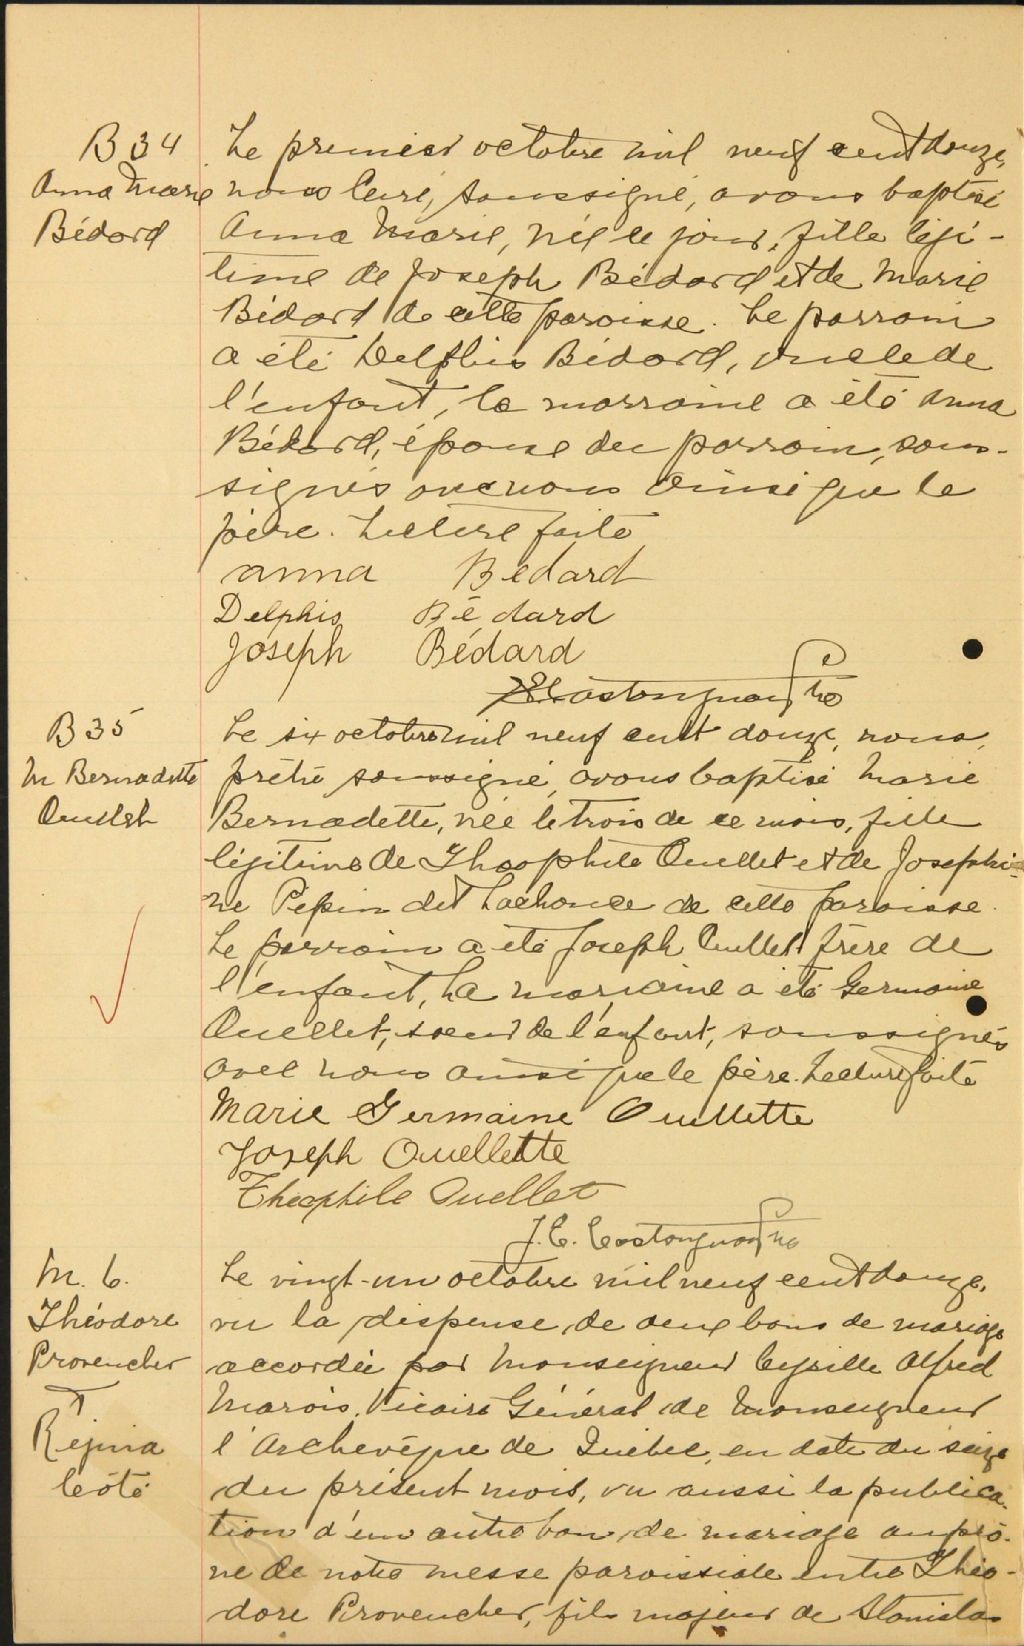 B 34
Anna Marie
Bédard
Le premier octobre mil neuf cent douze,
nous Curé, soussigné, avons baptisé
Anna Marie, née ce jour, fille légi-
time de Joseph Bédard et de Marie
Bédard de cette paroisse. Le parrain
a été Delphis Bédard, oncle de
l'enfant, la marraine a été Anna
Bédard, épouse du parrain, sous-
signés avec nous ainsi que le
père. Lecture faite
Anna Bédard
Delphis Bédard
Joseph Bédard
J.E. Castonguay Ptre
B 35
M Bernadette
Ouellet
Le six octobre mil neuf cent douze, nous,
prêtre soussigné, avons baptisé Marie
Bernadette, née le trois de ce mois, fille
légitime de Théophile Ouellet et de Josephi-
ne Pepin dit Lachance de cette paroisse.
Le parrain a été Joseph Ouellet frère de
l'enfant, La marraine a été Germaine
Ouellet, soeur de l'enfant, soussignés
avec nous ainsi que le père. Lecture faite
Marie Germaine Ouellette
Joseph Ouellette
Theophile Ouellet
J.E. Castonguay Ptre
M. 6.
Théodore
Provencher
&
Régina
Côté
Le vingt-un octobre mil neuf cent douze,
vu la dispense de deux bans de mariage
accordée par Monseigneur Cyrille Alfred
Marois, Vicaire Général de Monseigneur
l'Archevêque de Québec, en date du seize
du présent mois, vu aussi la publica-
tion d'un autre ban de mariage au prô-
ne de notre messe paroissiale entre Théo-
dore Provencher, fils majeur de Stanislas